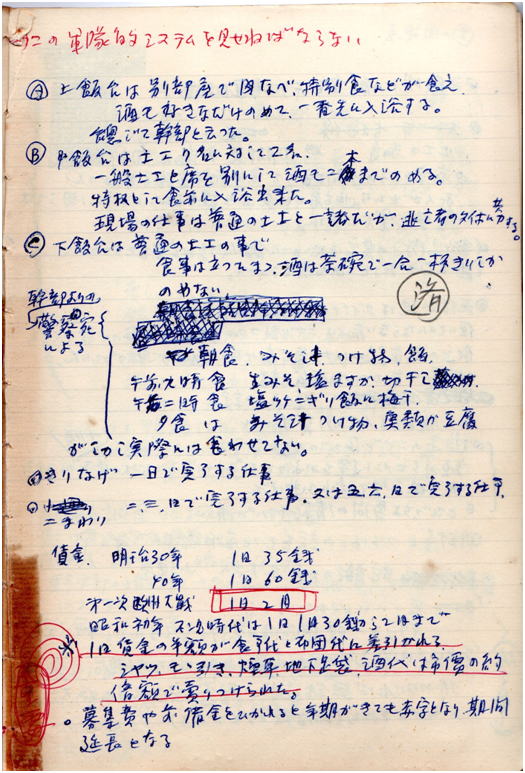 この軍隊的システムを見せねばならない
Ⓐ 上飯台は別部屋で肉なべ、特別食などが食え、
酒も好きなだけのめて、一番先に入浴する。
総じて幹部と云った。
Ⓑ 中飯台は土工
一般土工と席を別にして酒も二本までのめる。
特権として食前に入浴出来た。
現場の仕事は普通の土工と一諸だが 逃亡者の
Ⓒ 下飯台は普通の土工の事で
食事は立ってたべ、酒は茶碗で一合一杯きりしか
のめない
済
幹部より
警察
による
朝食 みそ汁、つけ物、飯
午前九時食 生みそ、塩ます、切干
午后二時食 塩 ニギリ飯に梅干
夕食は みそ汁 つけ物、魚類か豆腐
が 実際には食わせてない。
きりなげ 一日で完了する仕事
こまわり 二、三、日で完了する仕事、又は五、六、日で完了する仕事
賃金 明治30年 1日 35銭
40年 1日 60銭
第一次欧州大戦 1日 2円
昭和初年 時代は1日 1円30銭から2円まで
※ 1日賃金の半額が食事代と布団代に差引かれる
シャツ、モモ引き、煙草、地下足袋、酒代は市價の約
倍額で賣りつけられた。
○ 募集費や前借金をひかれると年期がきても赤字となり、期間
延長となる